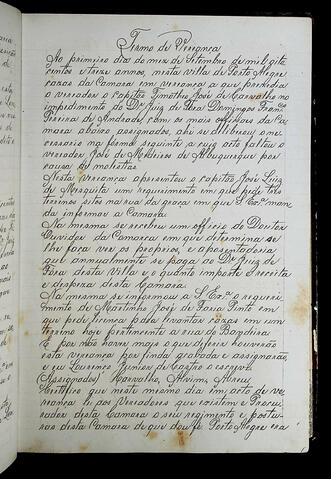 Termo de Vereança
Ao primeiro dia do mez de Setembro de mil oito
centos e treze annos, nesta villa de Porto Alegre
cazas da Camara em vereança a que prezidia
o vereador o capitão Timotheo José de Carvalho no
impedimento do Dr Juiz de Fóra Domingos Franco
Pereira de Andrade, com os mais officiaes da Ca
mara abaixo assignados, ahi se deliberou o ne
cessario na forma seguinte a cujo acto faltou o
vereador José de Medeiros de Albuquerque por
causa de molestia.
Nesta vereança apresentou o capitão José Luiz
de Mesquita um requerimento em que pede tres
terrenos sitos na rua da graça em que S Exca man
da informar a Camara
Na mesma se recebeu um officio do Doutor
Ouvidor da Comarca em que determina se
lhe faça ver as proprias, e aposentadoria
que annualmente se paga ao Dr Juiz de
Fóra desta Villa e o quanto importa a receita
e despeza desta Camara.
Na mesma se informou a S Exca o requeri
mento de Martinho José de Faria Pinto em
que pede licença para levantar cazas em um
terreno hoje pertencente a rua da Bandeira
E por não haver mais o que diferir houverão
esta vereança por finda acabada e assignarão
e eu Lourenço Junior de Castro o escrevi
(Assignados) Carvalho, Alvim, Abreu,
Certifico que neste mesmo dia em acto de ve
reança li aos Vereadores que existem e Procu
rador desta Camara o seu regimento e postu
ras desta Camara de que dou fé. Porto Alegre era